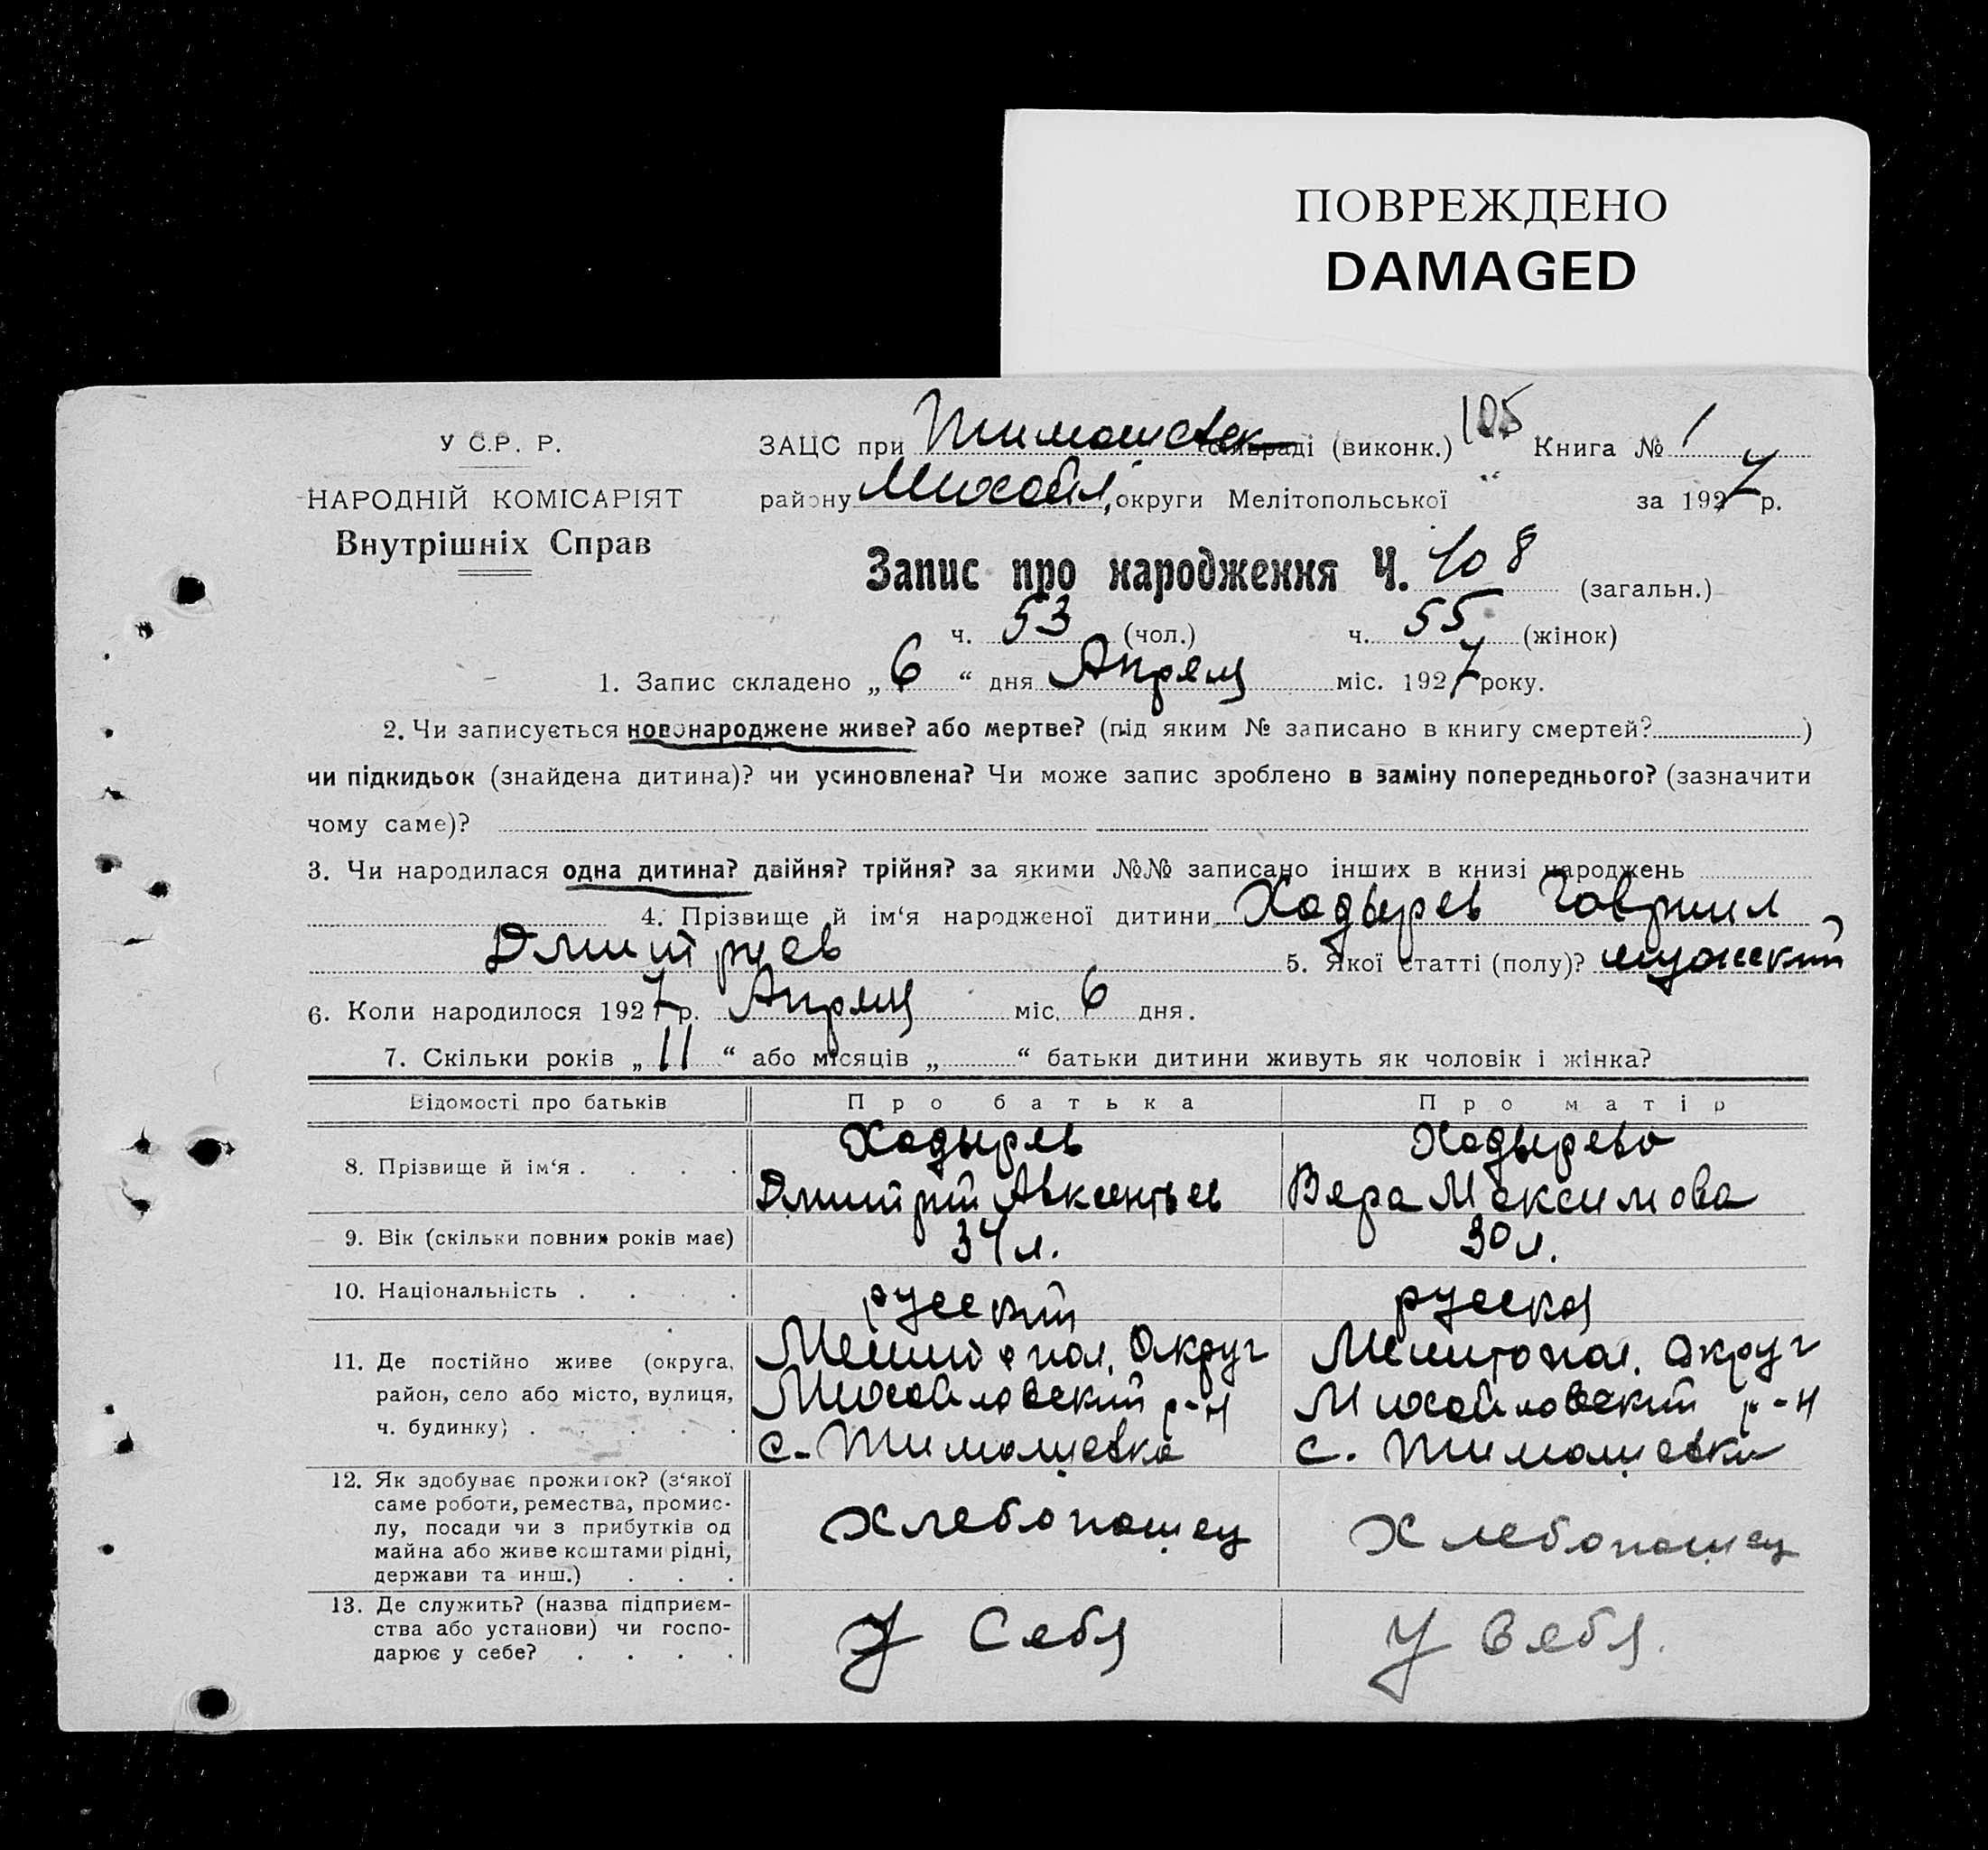 ПОВРЕЖДЕНО
DAMAGED
У С.Р. Р.
НАРОДНІЙ КОМІСАРІЯТ
Внутрішніх Справ
ЗАЦС при Тимошевск сільраді (виконк.) 105 Книга № 1
району Михайл, округи Мелітопольської за 1927 р.
Запис про народження Ч. 108 (загальн.)
ч. 53 (чол.) ч. 55 (жінок)
1. Запис складено „ 6 “ дня Апреля міс. 1927 року.
2. Чи записується новонароджене живе? або мертве? (під яким № записано в книгу смертей? )
чи підкидьок (знайдена дитина)? чи усиновлена? Чи може запис зроблено в заміну попереднього? (зазначити
чому саме)?
3. Чи народилася одна дитина? двійня? трійня? за якими №№ записано інших в книзі народжень
4. Прізвище й ім‘я народженої дитини Хадырев Гавриил
Дмитриев 5. Якої статті (полу)? мужский
6. Коли народилося 1927 р. Апреля міс. 6 дня.
7. Скільки років „ 11 “ або місяців „ “ батьки дитини живуть як чоловік і жінка?
Відомості про батьків Про батька Про матір
8. Прізвище й ім‘я . . . . Хадырев Дмитрий Авксентьев Хадырева Вера Максимова
9. Вік (скільки повних років має) 34 л. 30 л.
10. Національність . . . . русский руская
11. Де постійно живе (округа, Мелитопол. Округ Мелитопол. Округ
район, село або місто, вулиця, Михайловский р-н Михайловский р-н
ч. будинку) . . . . . с. Тимошевка с. Тимошевка
12. Як здобуває прожиток? (з‘якої
саме роботи, ремества, промис-
лу, посади чи з прибутків од Хлебопашец Хлебопашец
майна або живе коштами рідні,
держави та инш.) . . .
13. Де служить? (назва підприєм-
ства або установи) чи госпо- У Себя У Себя.
дарює у себе? . . . .